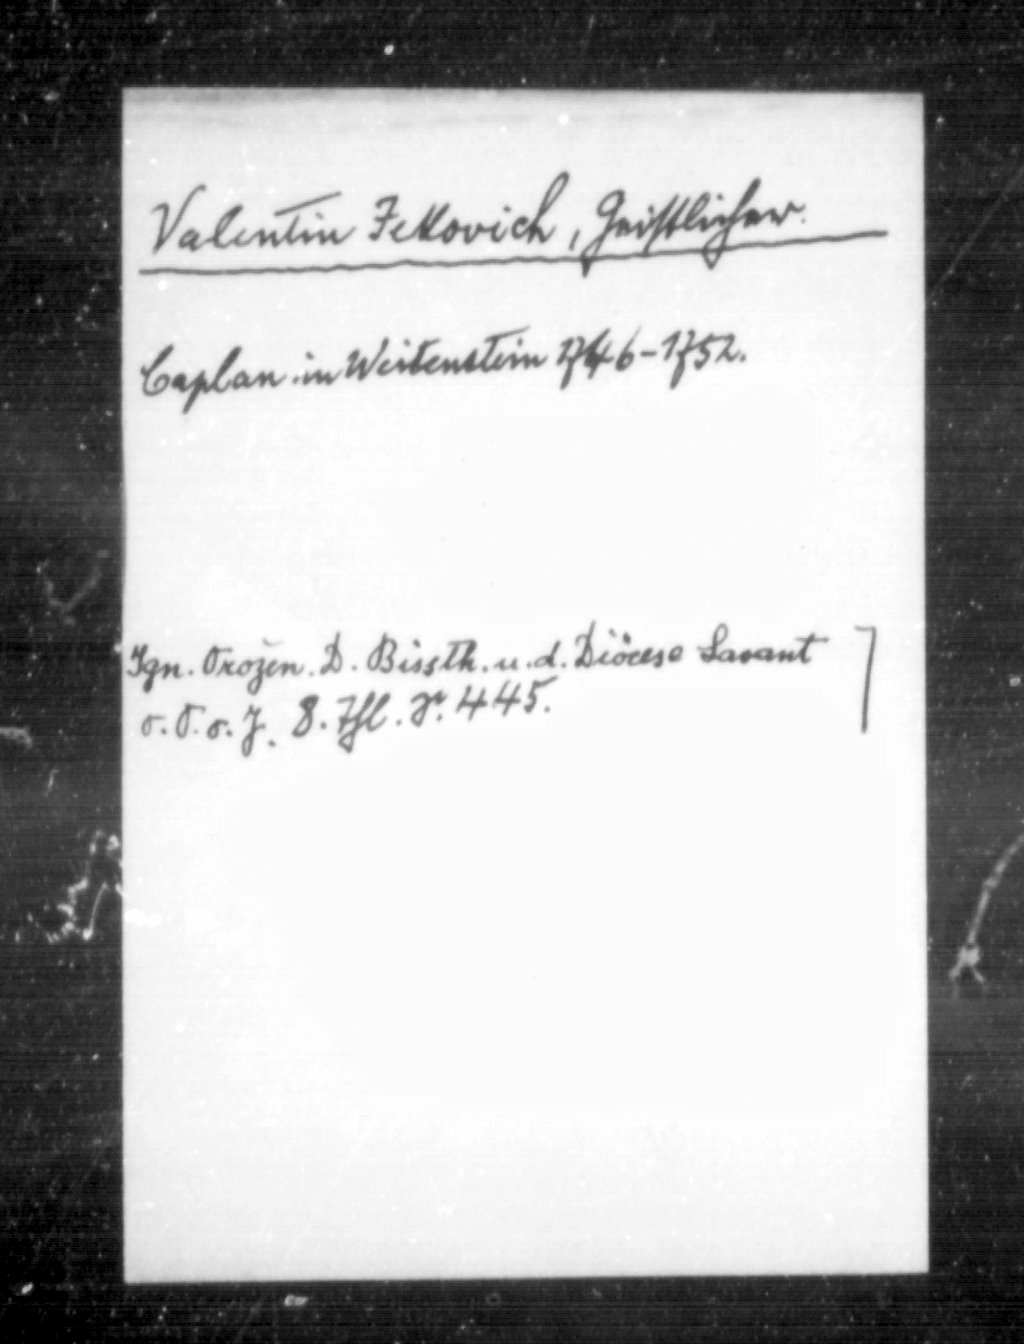 Valentin Fekkovich, Geistlicher.
Caplan in Weitenstein 1746-1752.
Ign. Orožen. D. Bissth. u. d. Diöcese Lavant
8. Thl. S. 445.